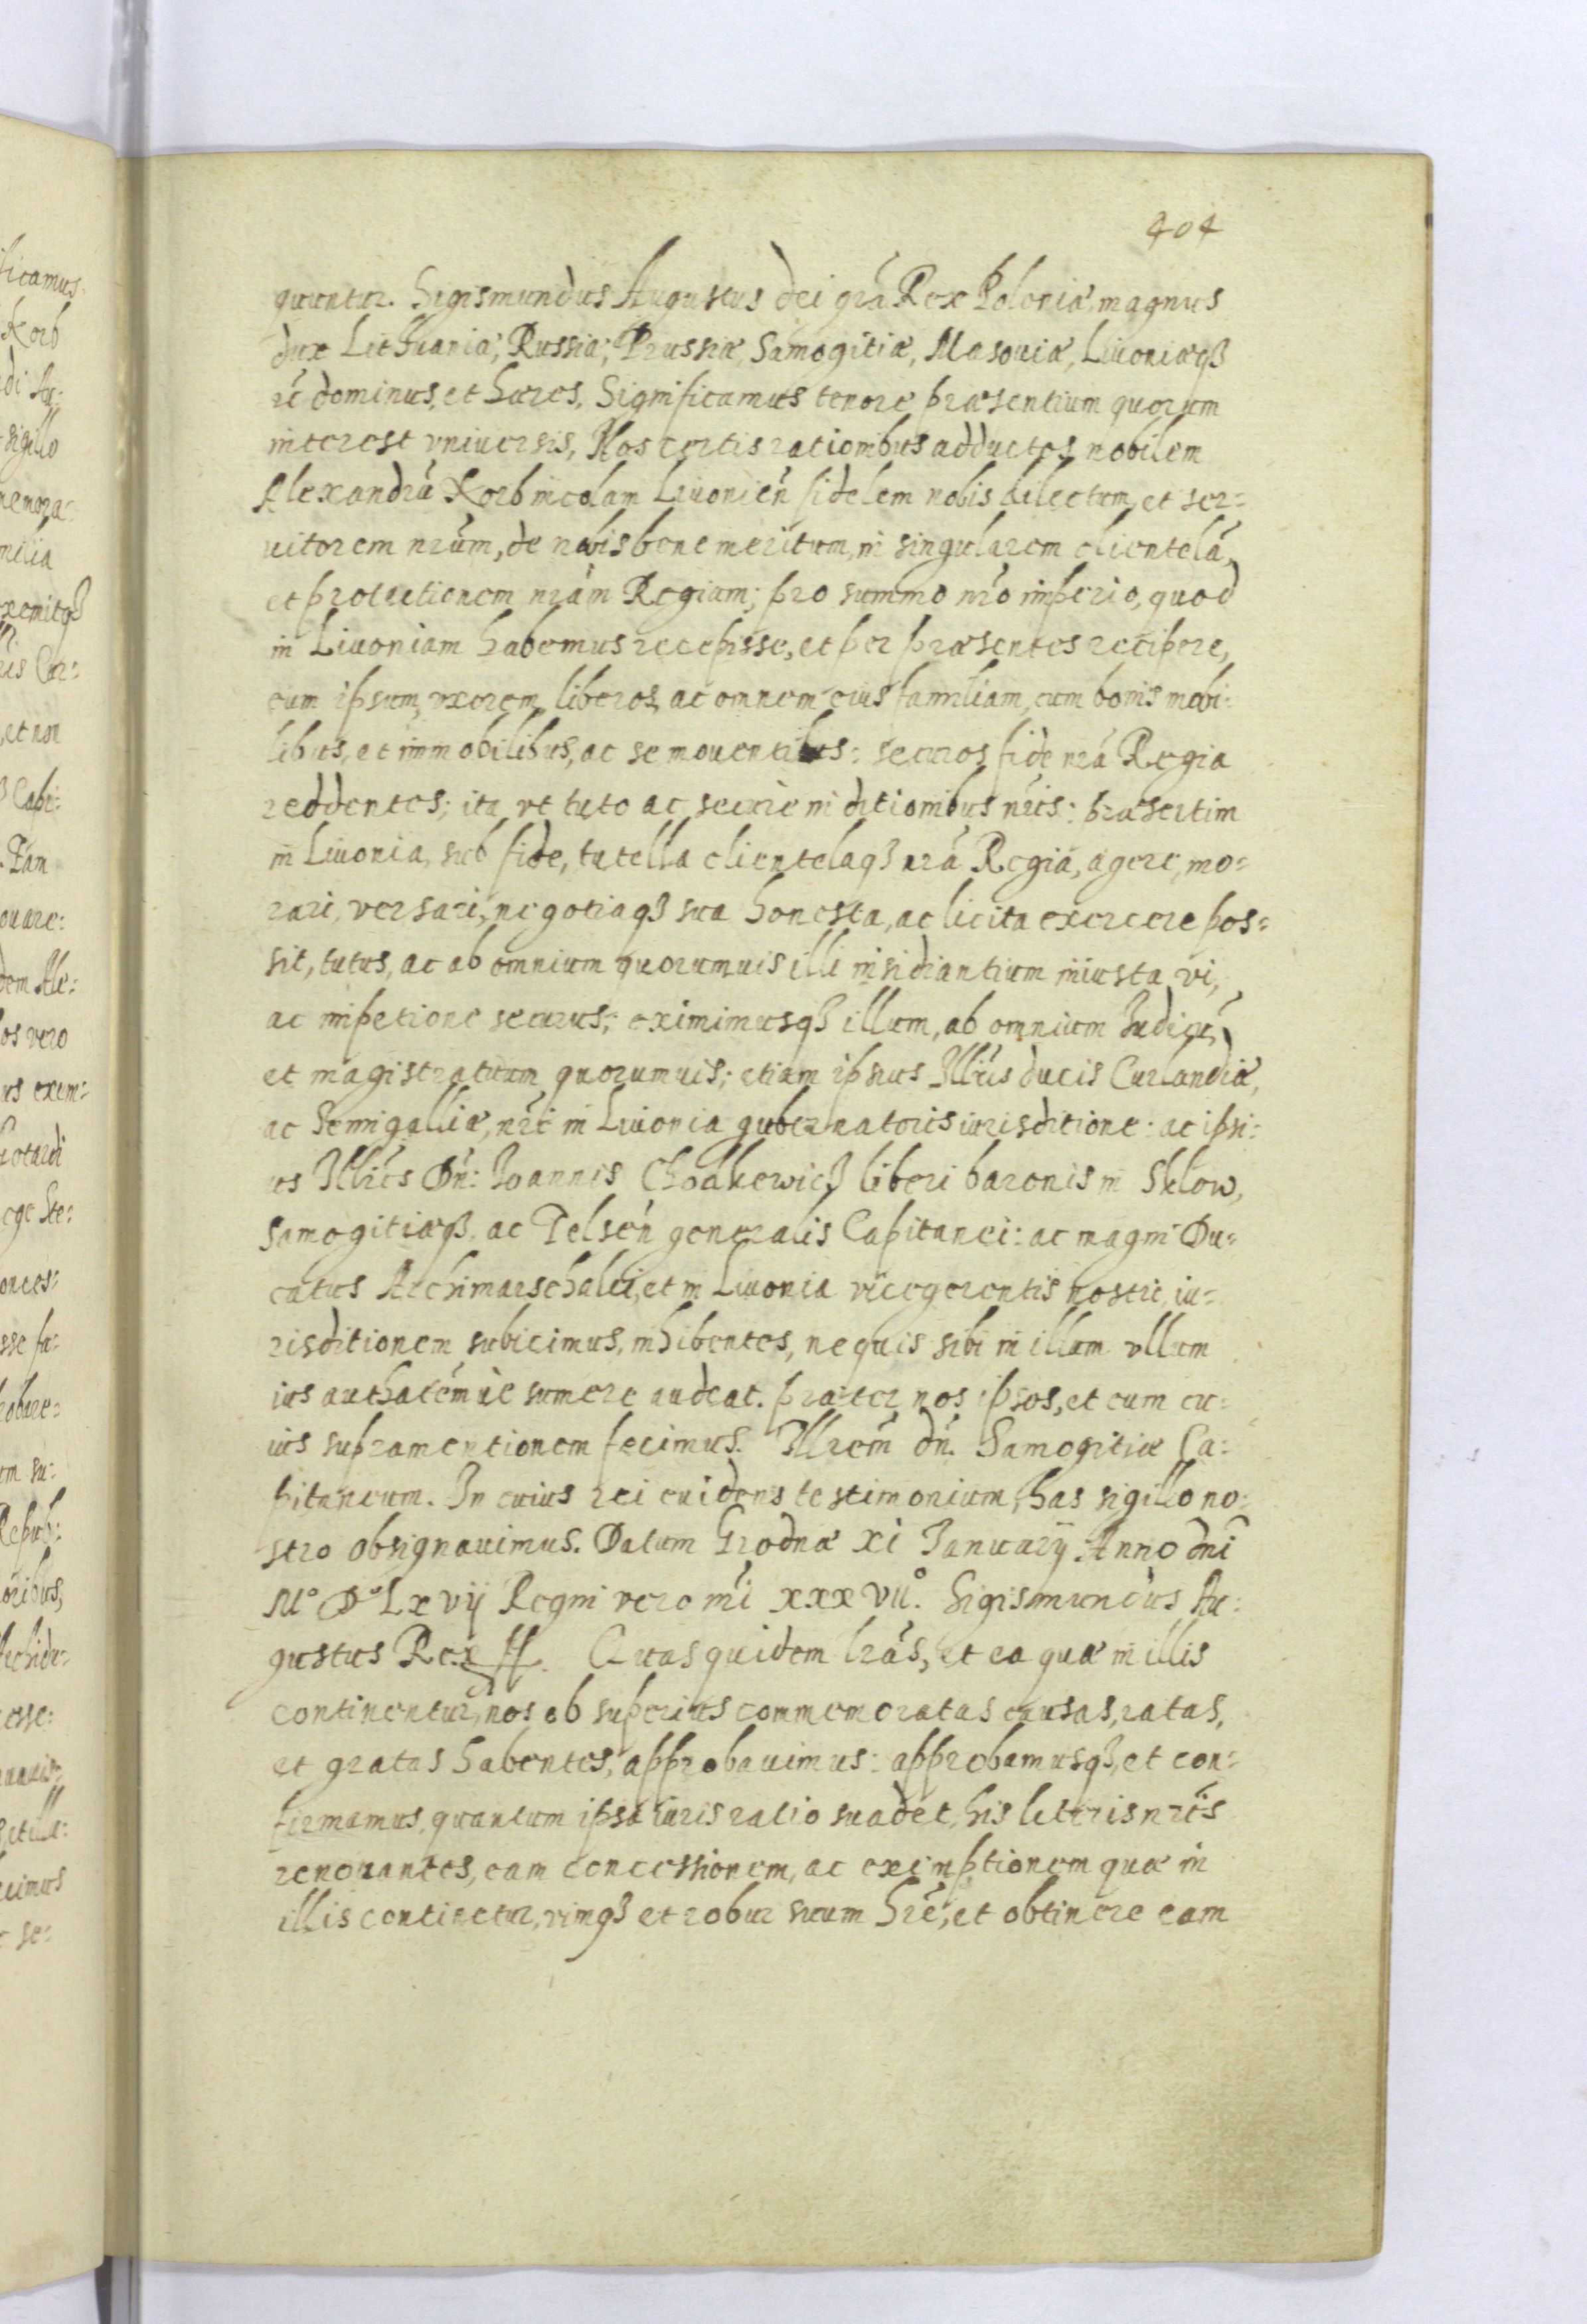 404
quuntur. Sigismundus Augustus dei grã Rex Poloniæ, magnus
dux Lithuaniæ, Russiæ, Prussiæ, Samogitiæ, Masouiæ, Liuoniæqȝ
rẽ dominus, et hæres, Significamus tenore præsentium quorum
interest vniuersis, Nos certis rationibus adductos, nobilem
Alexandrũ Korb incolam Liuoniẽn fidelem nobis dilectum, et ser=
uitorem nrũm, de nobis bene meritum, in singularem clientelã,
et protectionem nrãm Regiam; pro summo nrõ imperio, quod
in Liuoniam habemus recepisse, et per præsentes recipere,
eum ipsum, vxorem, liberos, ac omnem eius familiam, cum bonis mobi:
libus, et immobilibus, ac se mouentibus: securos fide nrã Regia
reddentes; ita vt tuto ac secure in ditionibus nrĩs: præsertim
in Liuonia, sub fide, tutella clientelaqȝ nrã Regiã, agere, mo=
rari, versari, negotiaqȝ sua honesta, ac licita exercere pos=
sit, tutus, ac ab omnium quorumuis illi insidiantium iniusta vi,
ac impetione securus; eximimusqȝ illum, ab omnium Iudicũ,
et magistratuum quorumuis; etiam ipsius Illrĩs ducis Curlandiæ,
ac Semigalliæ, nrĩ in Liuonia gubernatoris iurisditione: ac ipsi:
us Illrĩs Dñ: Joannis Chodkewicȝ liberi baronis in Sklow,
Samogitiæqȝ. ac Telseñ generalis Capitanei: ac magni Du=
catus Archimarschalci, et in Liuonia vicegerentis nostri, iu=
risditionem subicimus, inhibentes, ne quis sibi in illum vllum
ius authatẽmue sumere audeat. præter nos ipsos, et eum cu=
ius supra mentionem fecimus. Illrẽm dñ. Samogitiæ Ca:
pitaneum. In cuius rei euidens testimonium, has sigillo no:
stro obsignauimus. Datum Grodnæ xi Januarij Anno dnĩ
M° D° Lx vij Regni vero nrĩ xxx vii°. Sigismundus Au:
gustus Rex ſſ. Quas quidem lrãs, et ea quæ in illis
continentur, nos ob superius commemoratas causas, ratas,
et gratas habentes, approbauimus: approbamusqȝ, et con=
firmamus, quantum ipsa iuris ratio suadet, his literis nrĩs
renouantes, eam concessionem, ac exemptionem quæ in
illis continetur, vimqȝ et robur suum hrẽ, et obtinere eam